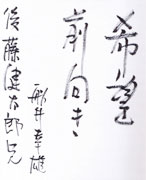 希望
前向き
船井幸雄
後藤健太郎兄